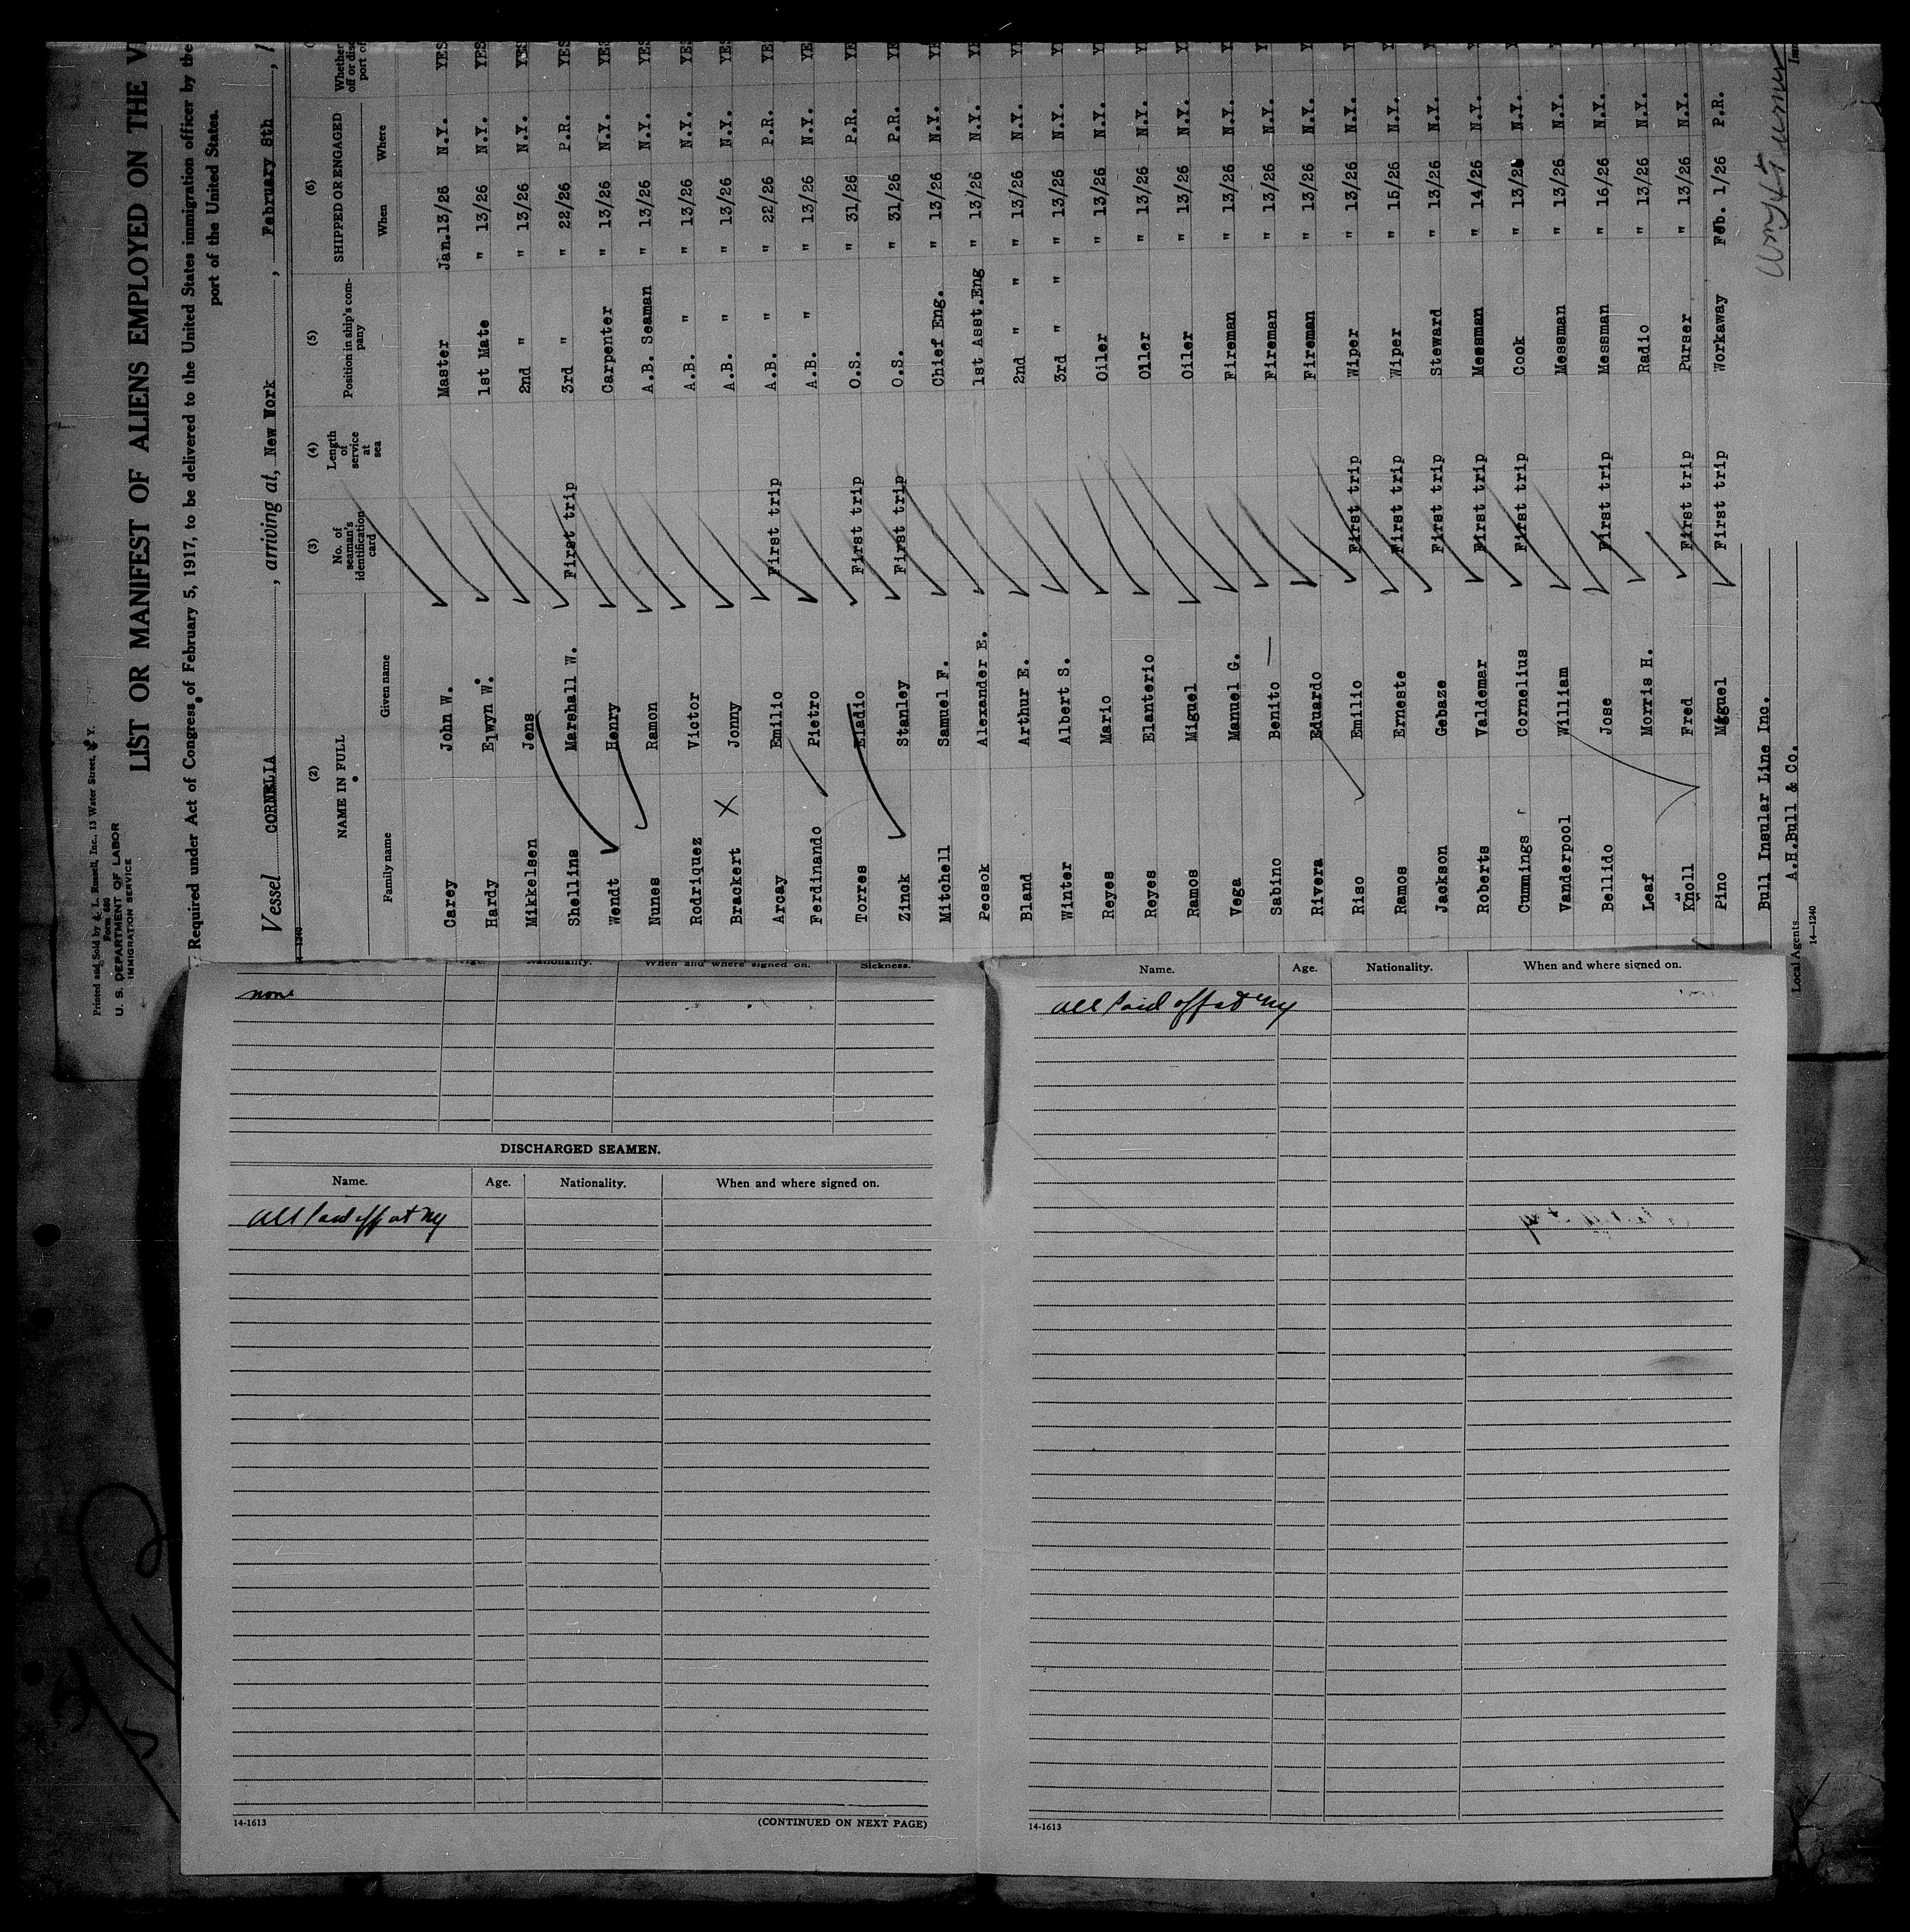 Printed and Sold by A. L. Russell, Inc., 13 Water Street, N. Y.
Form 680
U. S. DEPARTMENT OF LABOR
IMMIGRATION SERVICE
LIST OR MANIFEST OF ALIENS EMPLOYED ON THE
Required under Act of Congress of February 5, 1917, to be delivered to the United States immigration officer by the
port of the United States.
Vessel CORNELIA , arriving at, New York , February 8th , 1
14-1240
(2) (3) (4) (5) (6)
NAME IN FULL No. of seaman's identification card Length of service at sea Position in ship's company SHIPPED OR ENGAGED Whether
Family name Given name When Where
Carey John W. Master Jan.13/26 N.Y. YES
Hardy Elwyn W. 1st Mate " 13/26 N.Y. YES
Mikkelsen Jens 2nd " " 13/26 N.Y. YES
Shellins Marshall W. First trip 3rd " " 22/26 P.R. YES
Wendt Henry Carpenter " 13/26 N.Y. YES
Nunes Ramon A.B. Seaman " 13/26 N.Y. YES
Rodriquez Victor A.B. " " 13/26 N.Y. YES
Brackert Jonny A.B. " " 13/26 N.Y. YES
Arcay Emilio First trip A.B. " " 22/26 P.R. YE
Ferdinando Pietro A.B. " " 13/26 N.Y. YE
Torres Eladio First trip O.S. " 31/26 P.R. YE
Zinck Stanley First trip O.S. " 31/26 P.R. YE
Mitchell Samuel F. Chief Eng. " 13/26 N.Y. YE
Pecsok Alexander E. 1st Asst.Eng " 13/26 N.Y. YE
Bland Arthur E. 2nd " " " 13/26 N.Y. YE
Winter Albert S. 3rd " " " 13/26 N.Y. Y
Reyes Mario Oiler " 13/26 N.Y. Y
Reyes Elanterio Oiler " 13/26 N.Y. Y
Ramos Miguel Oiler " 13/26 N.Y. Y
Vega Manuel G. Fireman " 13/26 N.Y. Y
Sabino Benito — Fireman " 13/26 N.Y. Y
Rivera Eduardo Fireman " 13/26 N.Y. Y
Riso Emilio First trip Wiper " 13/26 N.Y. Y
Ramos Erneste First trip Wiper " 15/26 N.Y. Y
Jackson Gebaze First trip Steward " 13/26 N.Y. Y
Roberts Valdemar First trip Messman " 14/26 N.Y. Y
Cummings Cornelius First trip Cook " 13/26 N.Y. Y
Vanderpool William Messman " 13/26 N.Y. Y
Bellido Jose First trip Messman " 16/26 N.Y. Y
Leaf Morris H. Radio " 13/26 N.Y. Y
Knoll Fred First trip Purser " 13/26 N.Y. Y
Pino Miguel First trip Workaway Feb. 1/26 P.R.
Bull Insular Line Inc.
Local Agents A.H.Bull & Co.
14-1240
Age. Nationality. When and where signed on. Sickness.
none
DISCHARGED SEAMEN.
Name. Age. Nationality. When and where signed on.
All Paid off at NY
14-1613
(CONTINUED ON NEXT PAGE)
Name. Age. Nationality. When and where signed on.
All Paid off at NY
14-1613